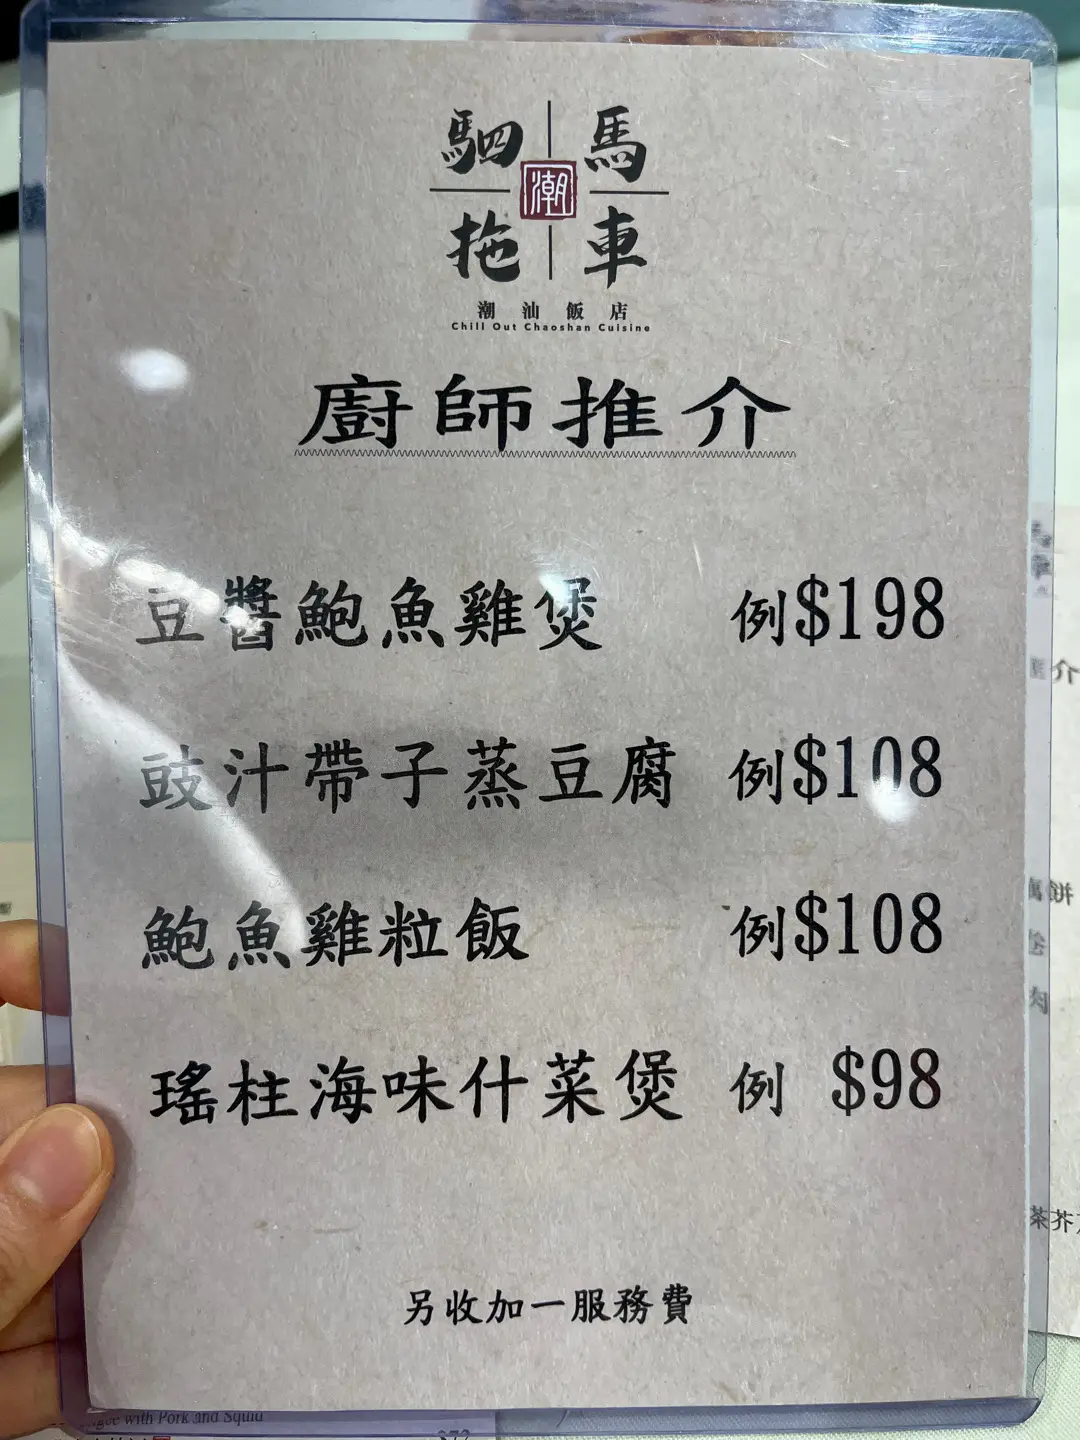 駟馬
潮
拖車
潮汕飯店
Chill Out Chaoshan Cuisine
廚師推介
豆醬鮑魚雞煲 例$198
豉汁帶子蒸豆腐 例$108
鮑魚雞粒飯 例$108
瑤柱海味什菜煲 例 $98
另收加一服務費
介
餅
肉
茶芥
with Pork and Squid